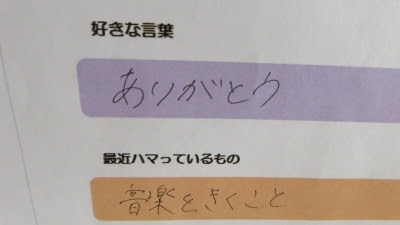 好きな言葉
ありがとう
最近ハマっているもの
音楽をきくこと